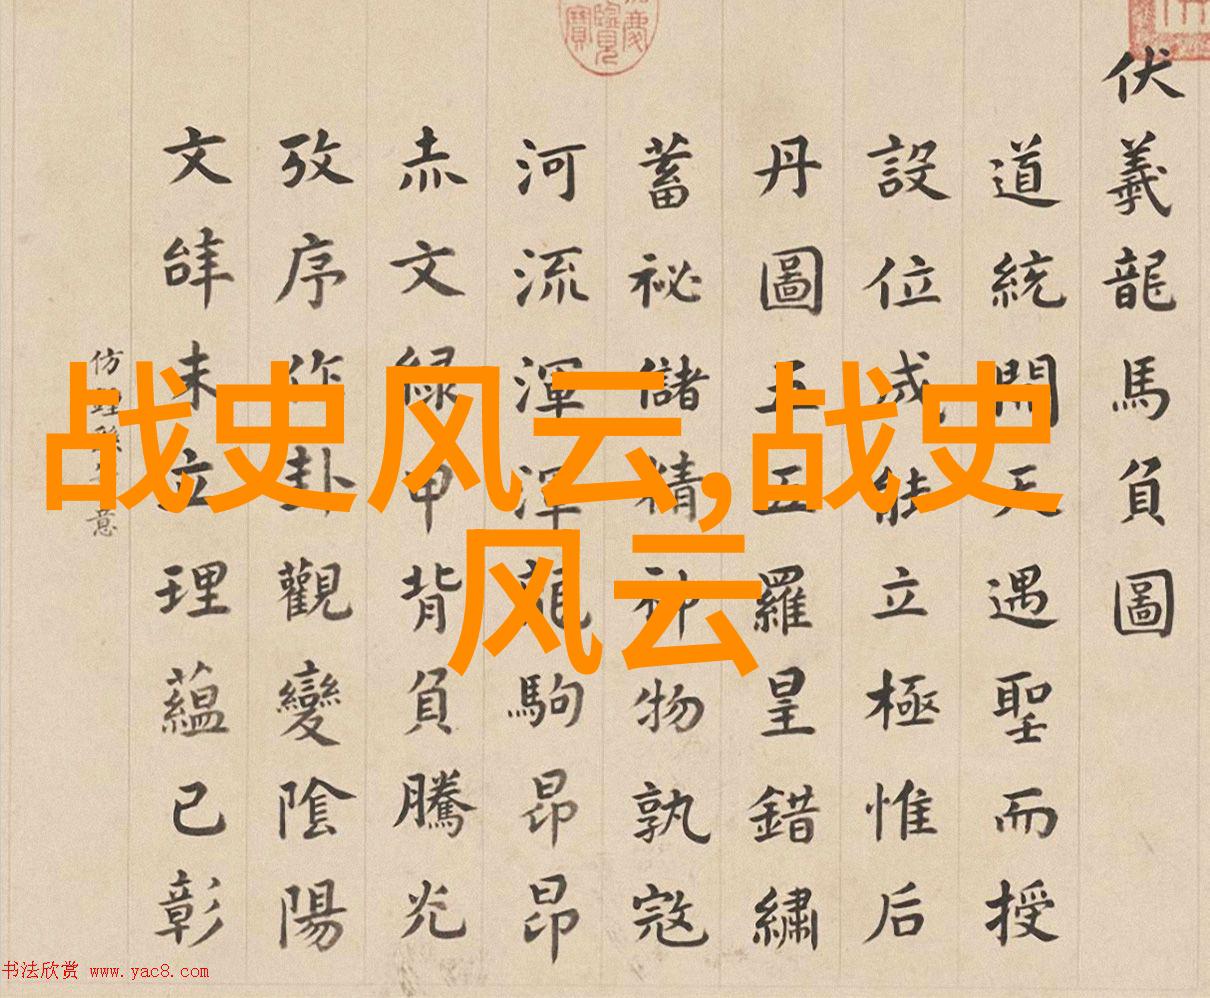 战史风云,战史
风云
伏羲龍馬負圖
道統開天遇聖而授
設位成能立極惟后
丹圖五羅皇錯繡
蓄祕儲精神物孰寇
河流渾渾龍駒昂昂
赤文綠甲背負騰光
攷序作卦觀變陰陽
文辝未立理蘊已彰
仿意
慶覽寶
书法欣赏 www.yac8.com